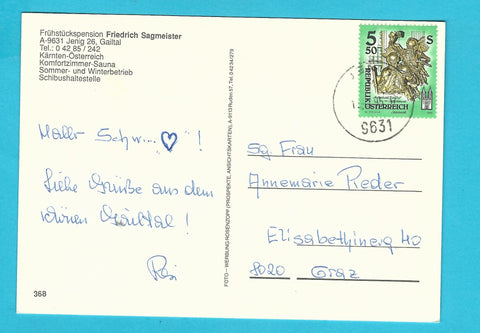 Frühstückspension Friedrich Sagmeister
A-9631 Jenig 26, Gailtal
Tel.: 0 42 85 / 242
Kärnten-Österreich
Komfortzimmer-Sauna
Sommer- und Winterbetrieb
Schibushaltestelle
Hallo Schw... ♡ !
Liebe Grüße aus dem
schönen Gailtal !
368
FOTO – WERBUNG ROSENZOPF (PROSPEKTE, ANSICHTSKARTEN), A-9113 Ruden 57, Tel. 0 42 34/273
5 50 S
REPUBLIK
ÖSTERREICH
9631
Sg. Frau
Annemarie Rieder
Elisabethinerg 40
8020 Graz